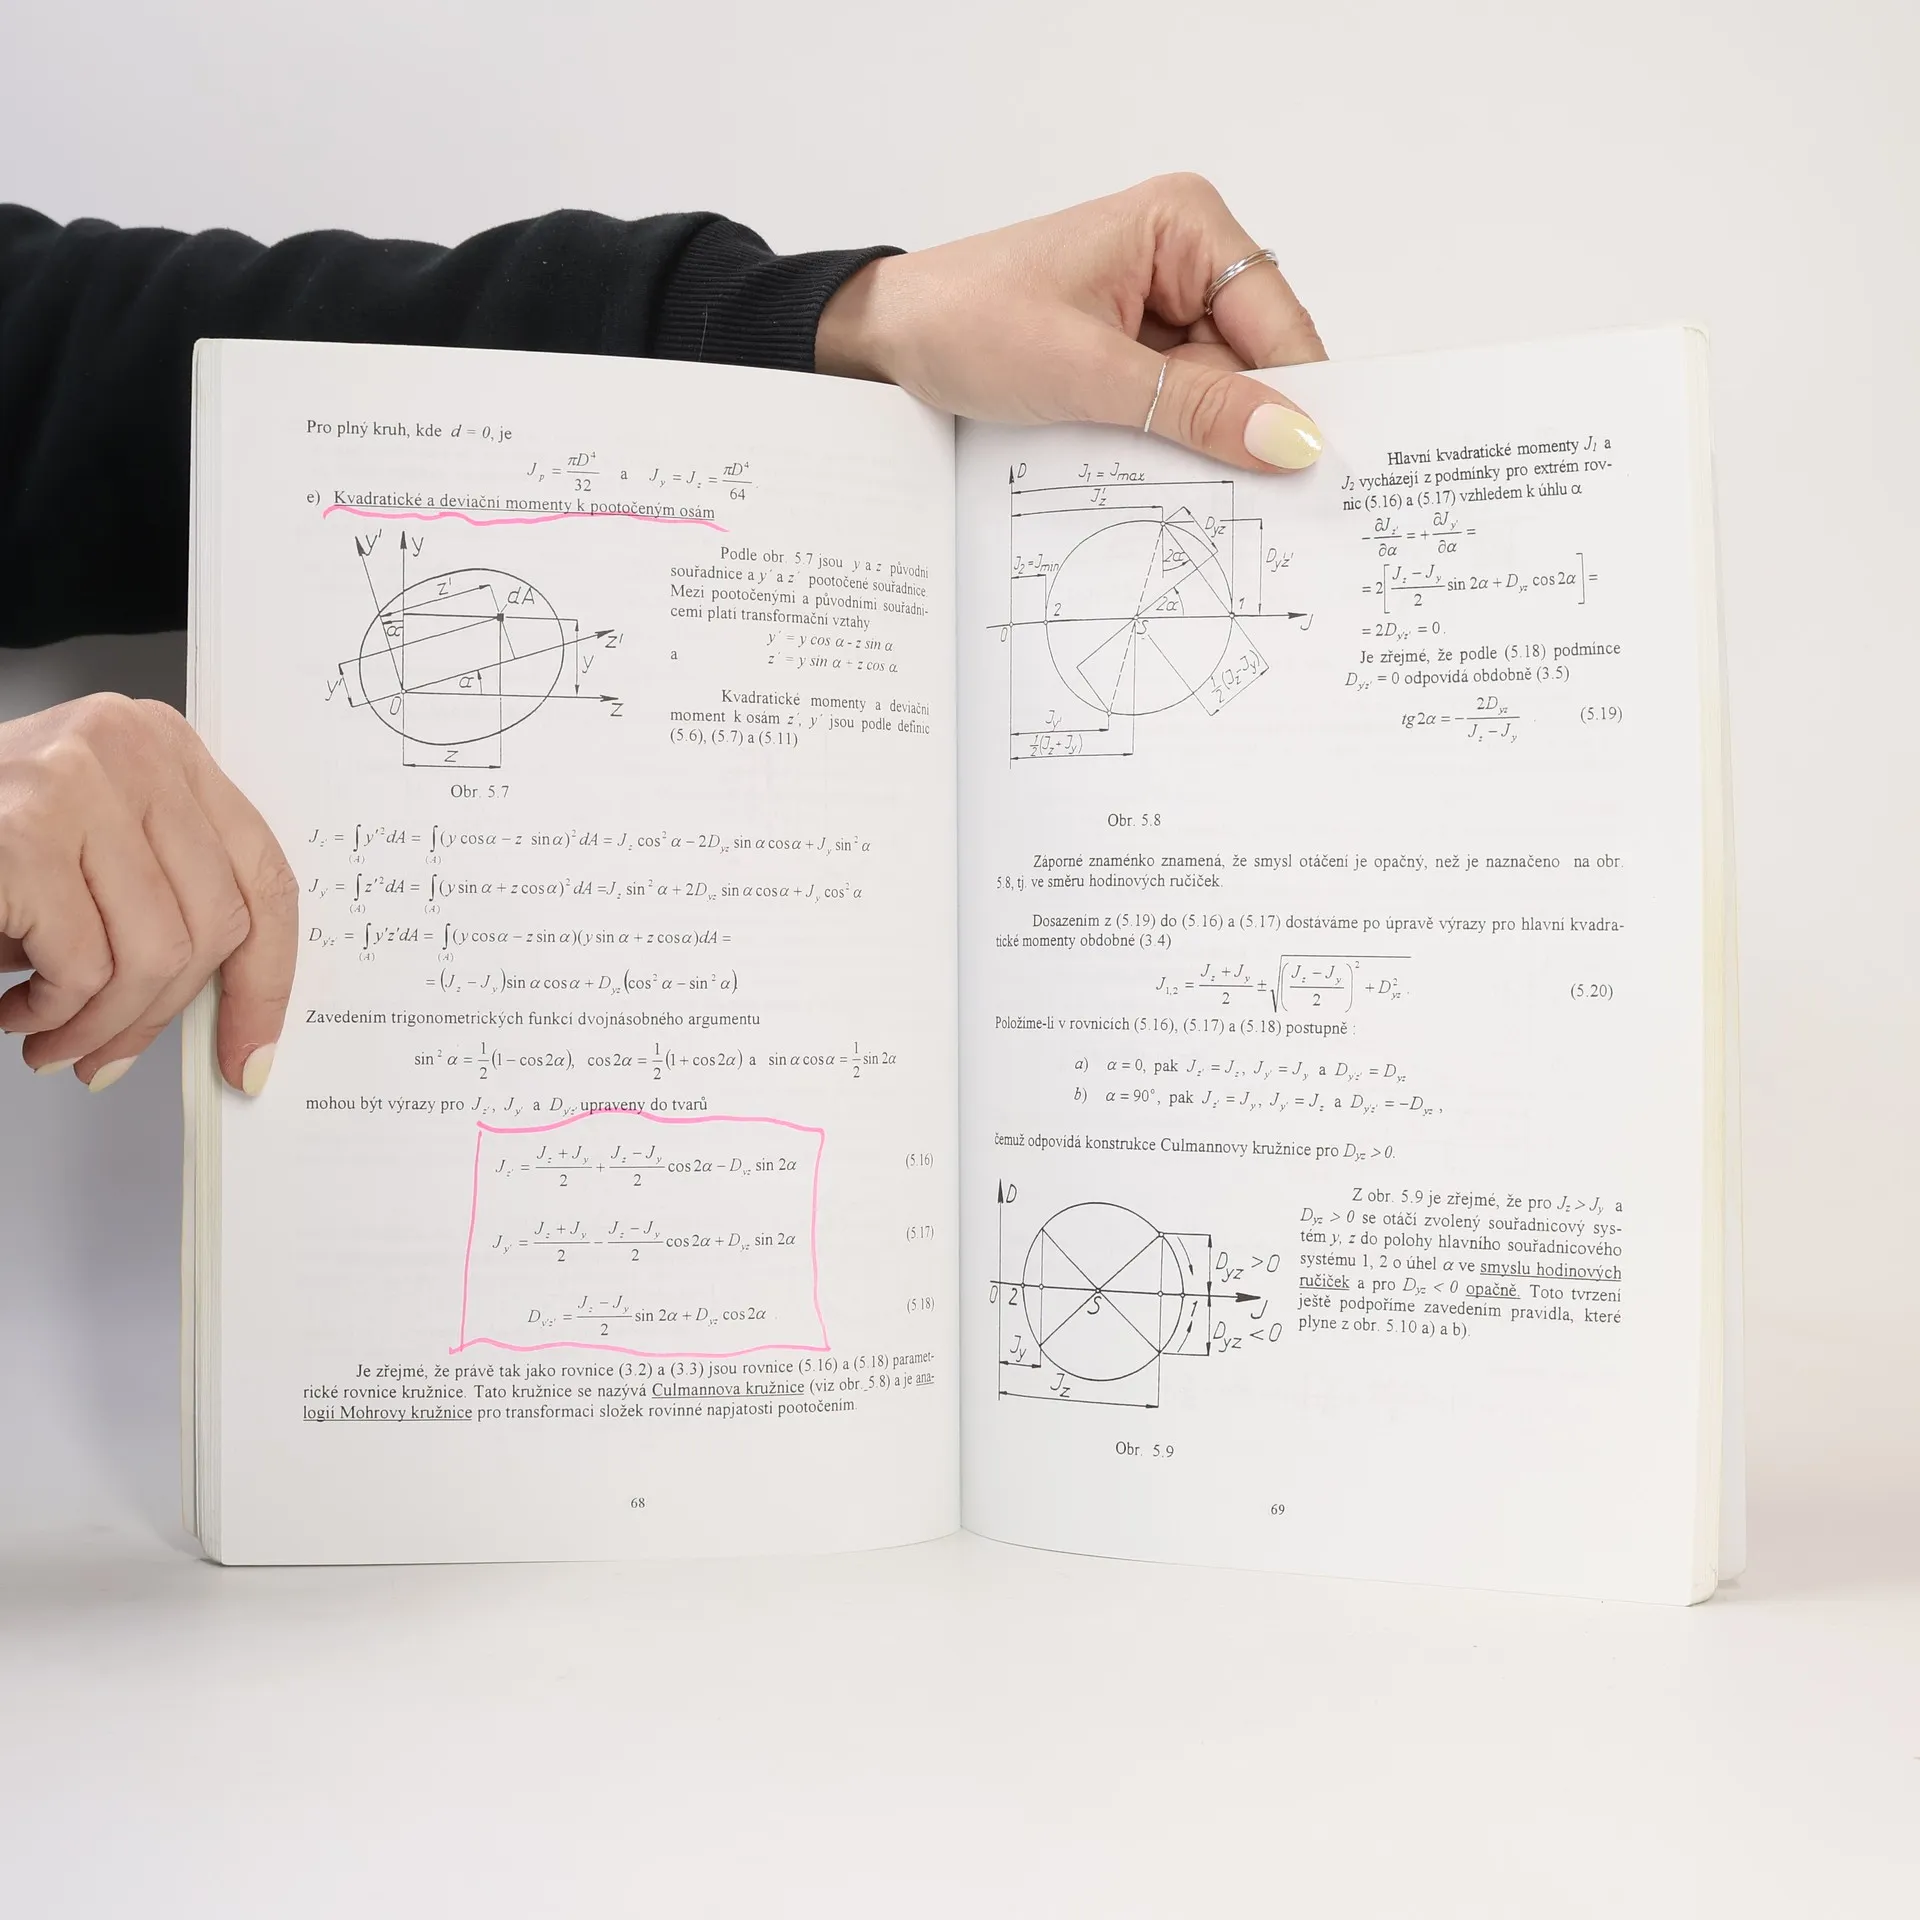 Pro plný kruh, kde d = 0, je
J_p = πD⁴/32 a J_y = J_z = πD⁴/64 .
e) Kvadratické a deviační momenty k pootočeným osám
y' y
z' dA
α
z'
y
y' α
0 z
z
Obr. 5.7
Podle obr. 5.7 jsou y a z původní
souřadnice a y´ a z´ pootočené souřadnice.
Mezi pootočenými a původními souřadni-
cemi platí transformační vztahy
y´ = y cos α - z sin α
a z´ = y sin α + z cos α.
Kvadratické momenty a deviační
moment k osám z´, y´ jsou podle definic
(5.6), (5.7) a (5.11)
J_z' = ∫(A) y'²dA = ∫(A) (y cosα − z sinα)² dA = J_z cos² α − 2D_yz sin α cosα + J_y sin² α
J_y' = ∫(A) z'²dA = ∫(A) (y sin α + z cosα)² dA =J_z sin² α + 2D_yz sin α cosα + J_y cos² α
D_y'z' = ∫(A) y'z'dA = ∫(A) (y cosα − z sinα)(y sin α + z cosα)dA =
= (J_z − J_y)sin α cosα + D_yz (cos² α − sin² α)
Zavedením trigonometrických funkcí dvojnásobného argumentu
sin² α = 1/2 (1 − cos2α), cos2α = 1/2 (1 + cos2α) a sin α cosα = 1/2 sin 2α
mohou být výrazy pro J_z', J_y' a D_y'z' upraveny do tvarů
J_z' = (J_z + J_y)/2 + (J_z − J_y)/2 cos2α − D_yz sin 2α (5.16)
J_y' = (J_z + J_y)/2 − (J_z − J_y)/2 cos2α + D_yz sin 2α (5.17)
D_y'z' = (J_z − J_y)/2 sin 2α + D_yz cos2α . (5.18)
Je zřejmé, že právě tak jako rovnice (3.2) a (3.3) jsou rovnice (5.16) a (5.18) paramet-
rické rovnice kružnice. Tato kružnice se nazývá Culmannova kružnice (viz obr. 5.8) a je ana-
logií Mohrovy kružnice pro transformaci složek rovinné napjatosti pootočením.
68
D J₁ = Jmax
J_z'
D_yz
J₂=Jmin 2α D_y'z'
2 2α 1
0 S J
½(J_z-J_y)
J_y'
½(J_z+J_y)
Obr. 5.8
Hlavní kvadratické momenty J₁ a
J₂ vycházejí z podmínky pro extrém rov-
nic (5.16) a (5.17) vzhledem k úhlu α
−∂J_z'/∂α = +∂J_y'/∂α =
= 2[(J_z − J_y)/2 sin 2α + D_yz cos2α] =
= 2D_y'z' = 0.
Je zřejmé, že podle (5.18) podmínce
D_y'z' = 0 odpovídá obdobně (3.5)
tg2α = − 2D_yz/(J_z − J_y) . (5.19)
Záporné znaménko znamená, že smysl otáčení je opačný, než je naznačeno na obr.
5.8, tj. ve směru hodinových ručiček.
Dosazením z (5.19) do (5.16) a (5.17) dostáváme po úpravě výrazy pro hlavní kvadra-
tické momenty obdobné (3.4)
J_1,2 = (J_z + J_y)/2 ± √(((J_z − J_y)/2)² + D²_yz) . (5.20)
Položíme-li v rovnicích (5.16), (5.17) a (5.18) postupně :
a) α = 0, pak J_z' = J_z, J_y' = J_y a D_y'z' = D_yz
b) α = 90°, pak J_z' = J_y, J_y' = J_z a D_y'z' = −D_yz ,
čemuž odpovídá konstrukce Culmannovy kružnice pro D_yz > 0.
D
D_yz >0
0 2 S 1 J
D_yz <0
J_y
J_z
Obr. 5.9
Z obr. 5.9 je zřejmé, že pro J_z > J_y a
D_yz > 0 se otáčí zvolený souřadnicový sys-
tém y, z do polohy hlavního souřadnicového
systému 1, 2 o úhel α ve smyslu hodinových
ručiček a pro D_yz < 0 opačně. Toto tvrzení
ještě podpoříme zavedením pravidla, které
plyne z obr. 5.10 a) a b).
69